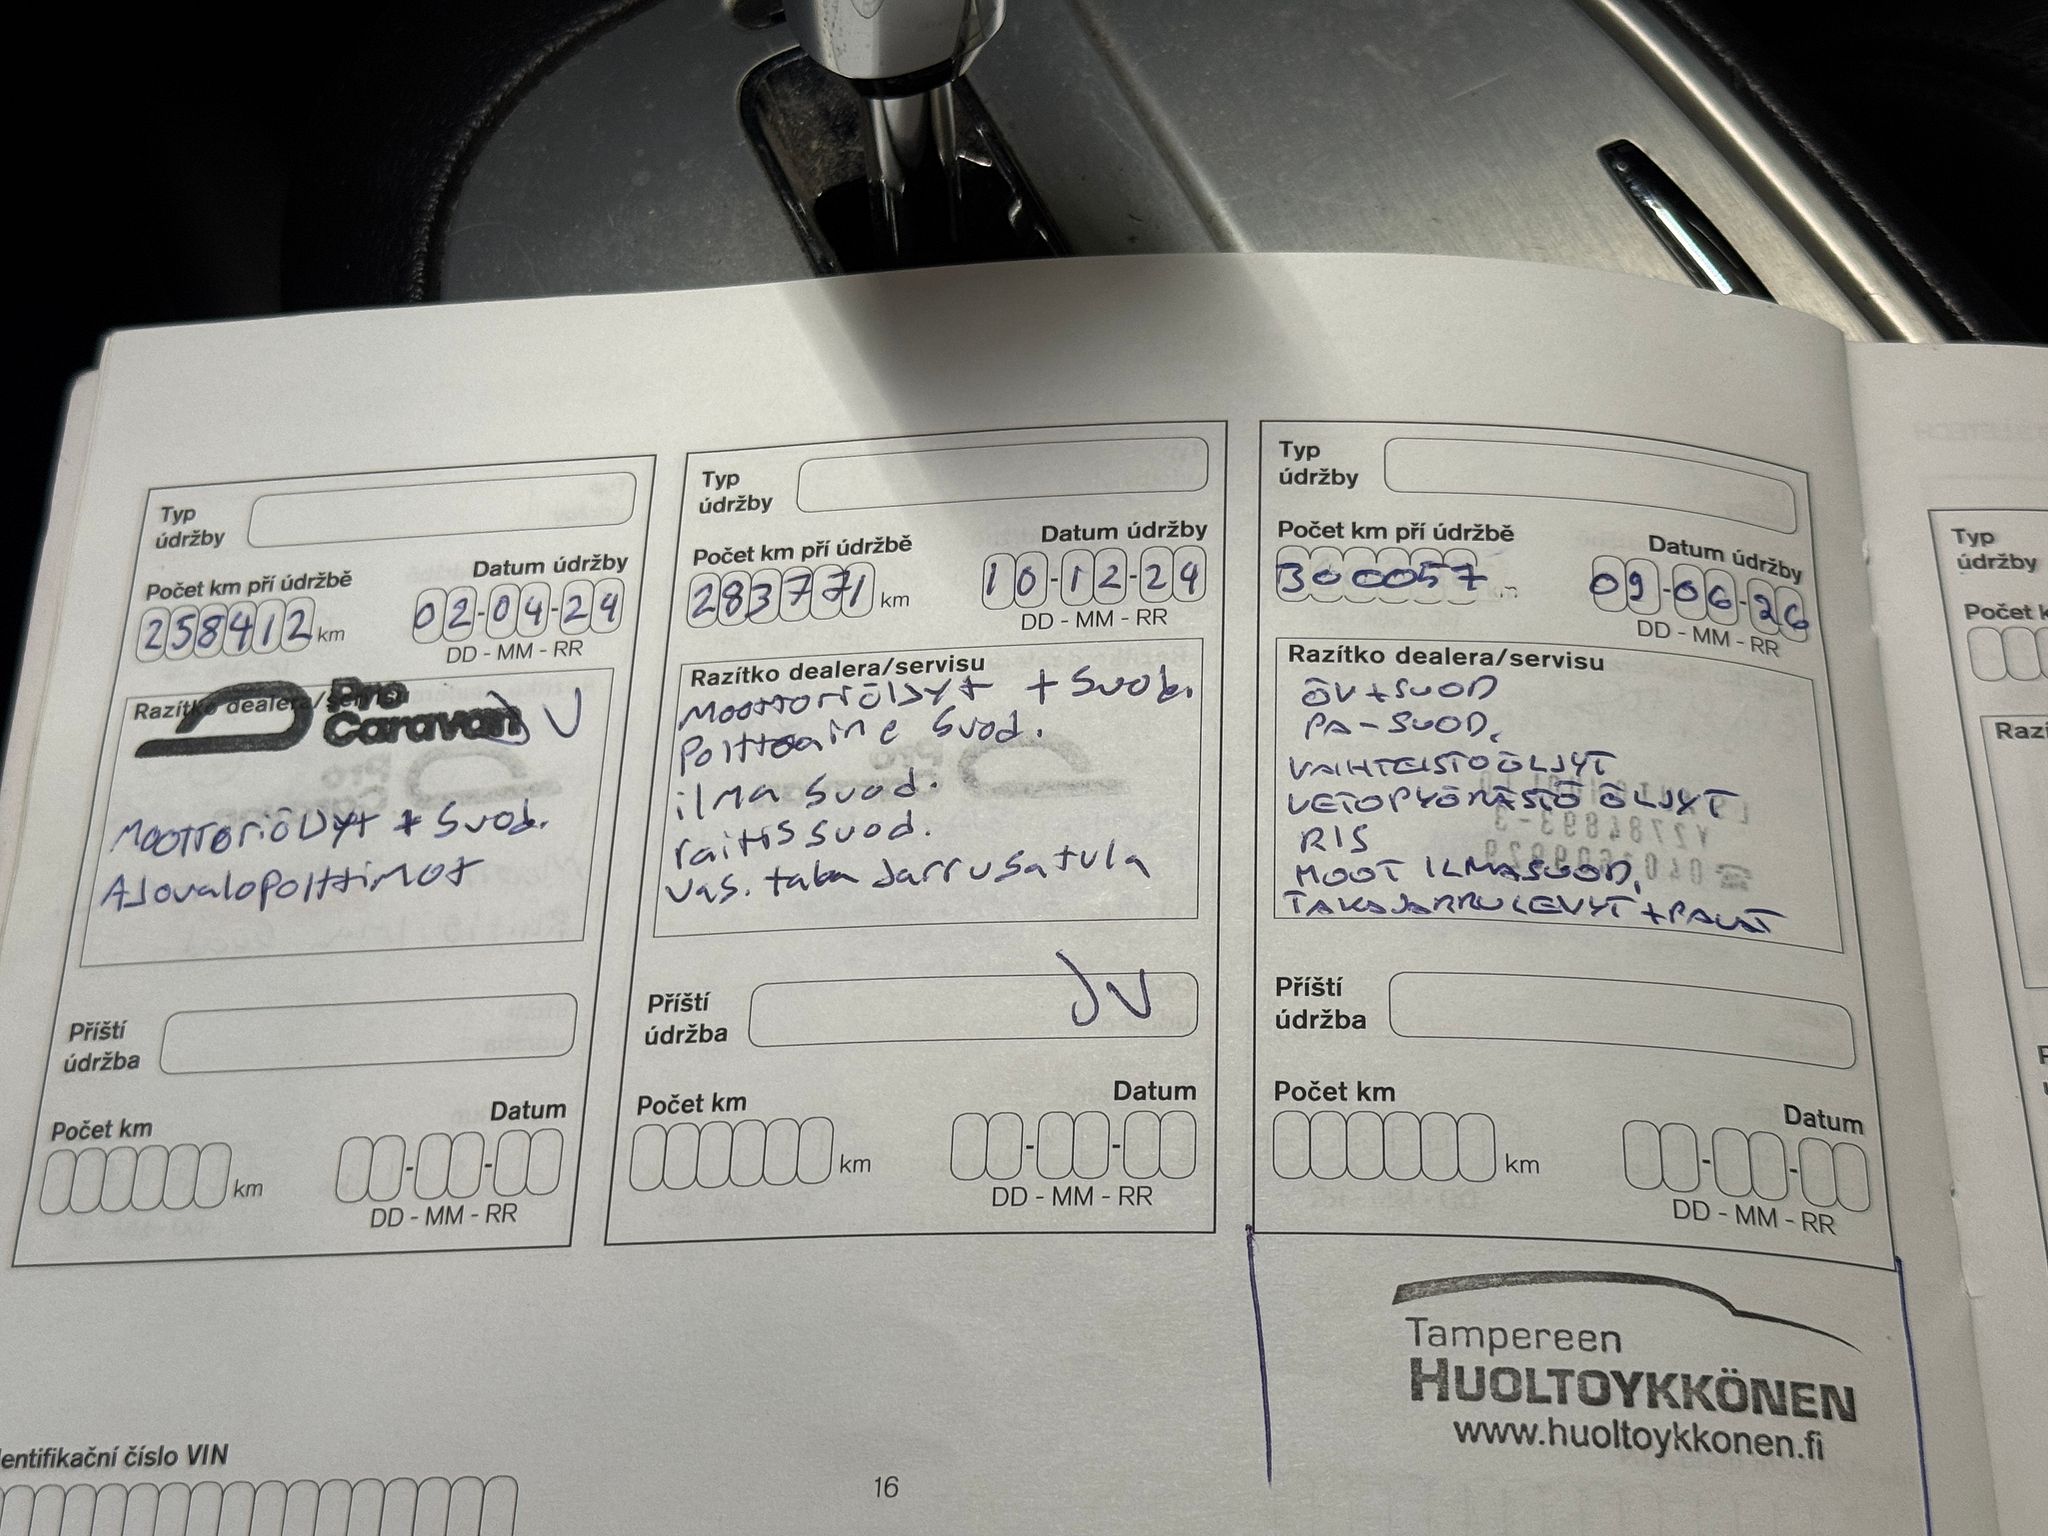 Typ
údržby
Počet km pří údržbě
Datum údržby
258412 km
02-04-24
DD - MM - RR
Razítko dealera/servisu
Pro
Caravan
JV
Moottoriöljyt + Suod.
Ajovalopolttimot
Příští
údržba
Počet km
Datum
km
DD - MM - RR
Typ
údržby
Počet km pří údržbě
Datum údržby
283771 km
10-12-24
DD - MM - RR
Razítko dealera/servisu
Moottoriöljyt + Suod.
Polttoaine Suod.
ilma Suod.
raitis suod.
Vas. taka Jarrusatula
JV
Příští
údržba
Počet km
Datum
km
DD - MM - RR
Typ
údržby
Počet km pří údržbě
Datum údržby
300057
09-06-26
DD - MM - RR
Razítko dealera/servisu
ÖV + SUOD
PA-SUOD.
VAIHTEISTOÖLJYT
VETOPYÖRÄSTÖ ÖLJYT
RIS
MOOT ILMASUOD.
TAKAJARRULEVYT + PALAT
Příští
údržba
Počet km
Datum
km
DD - MM - RR
Tampereen
HUOLTOYKKÖNEN
www.huoltoykkonen.fi
entifikační číslo VIN
16
Typ
údržby
Počet k
Razí